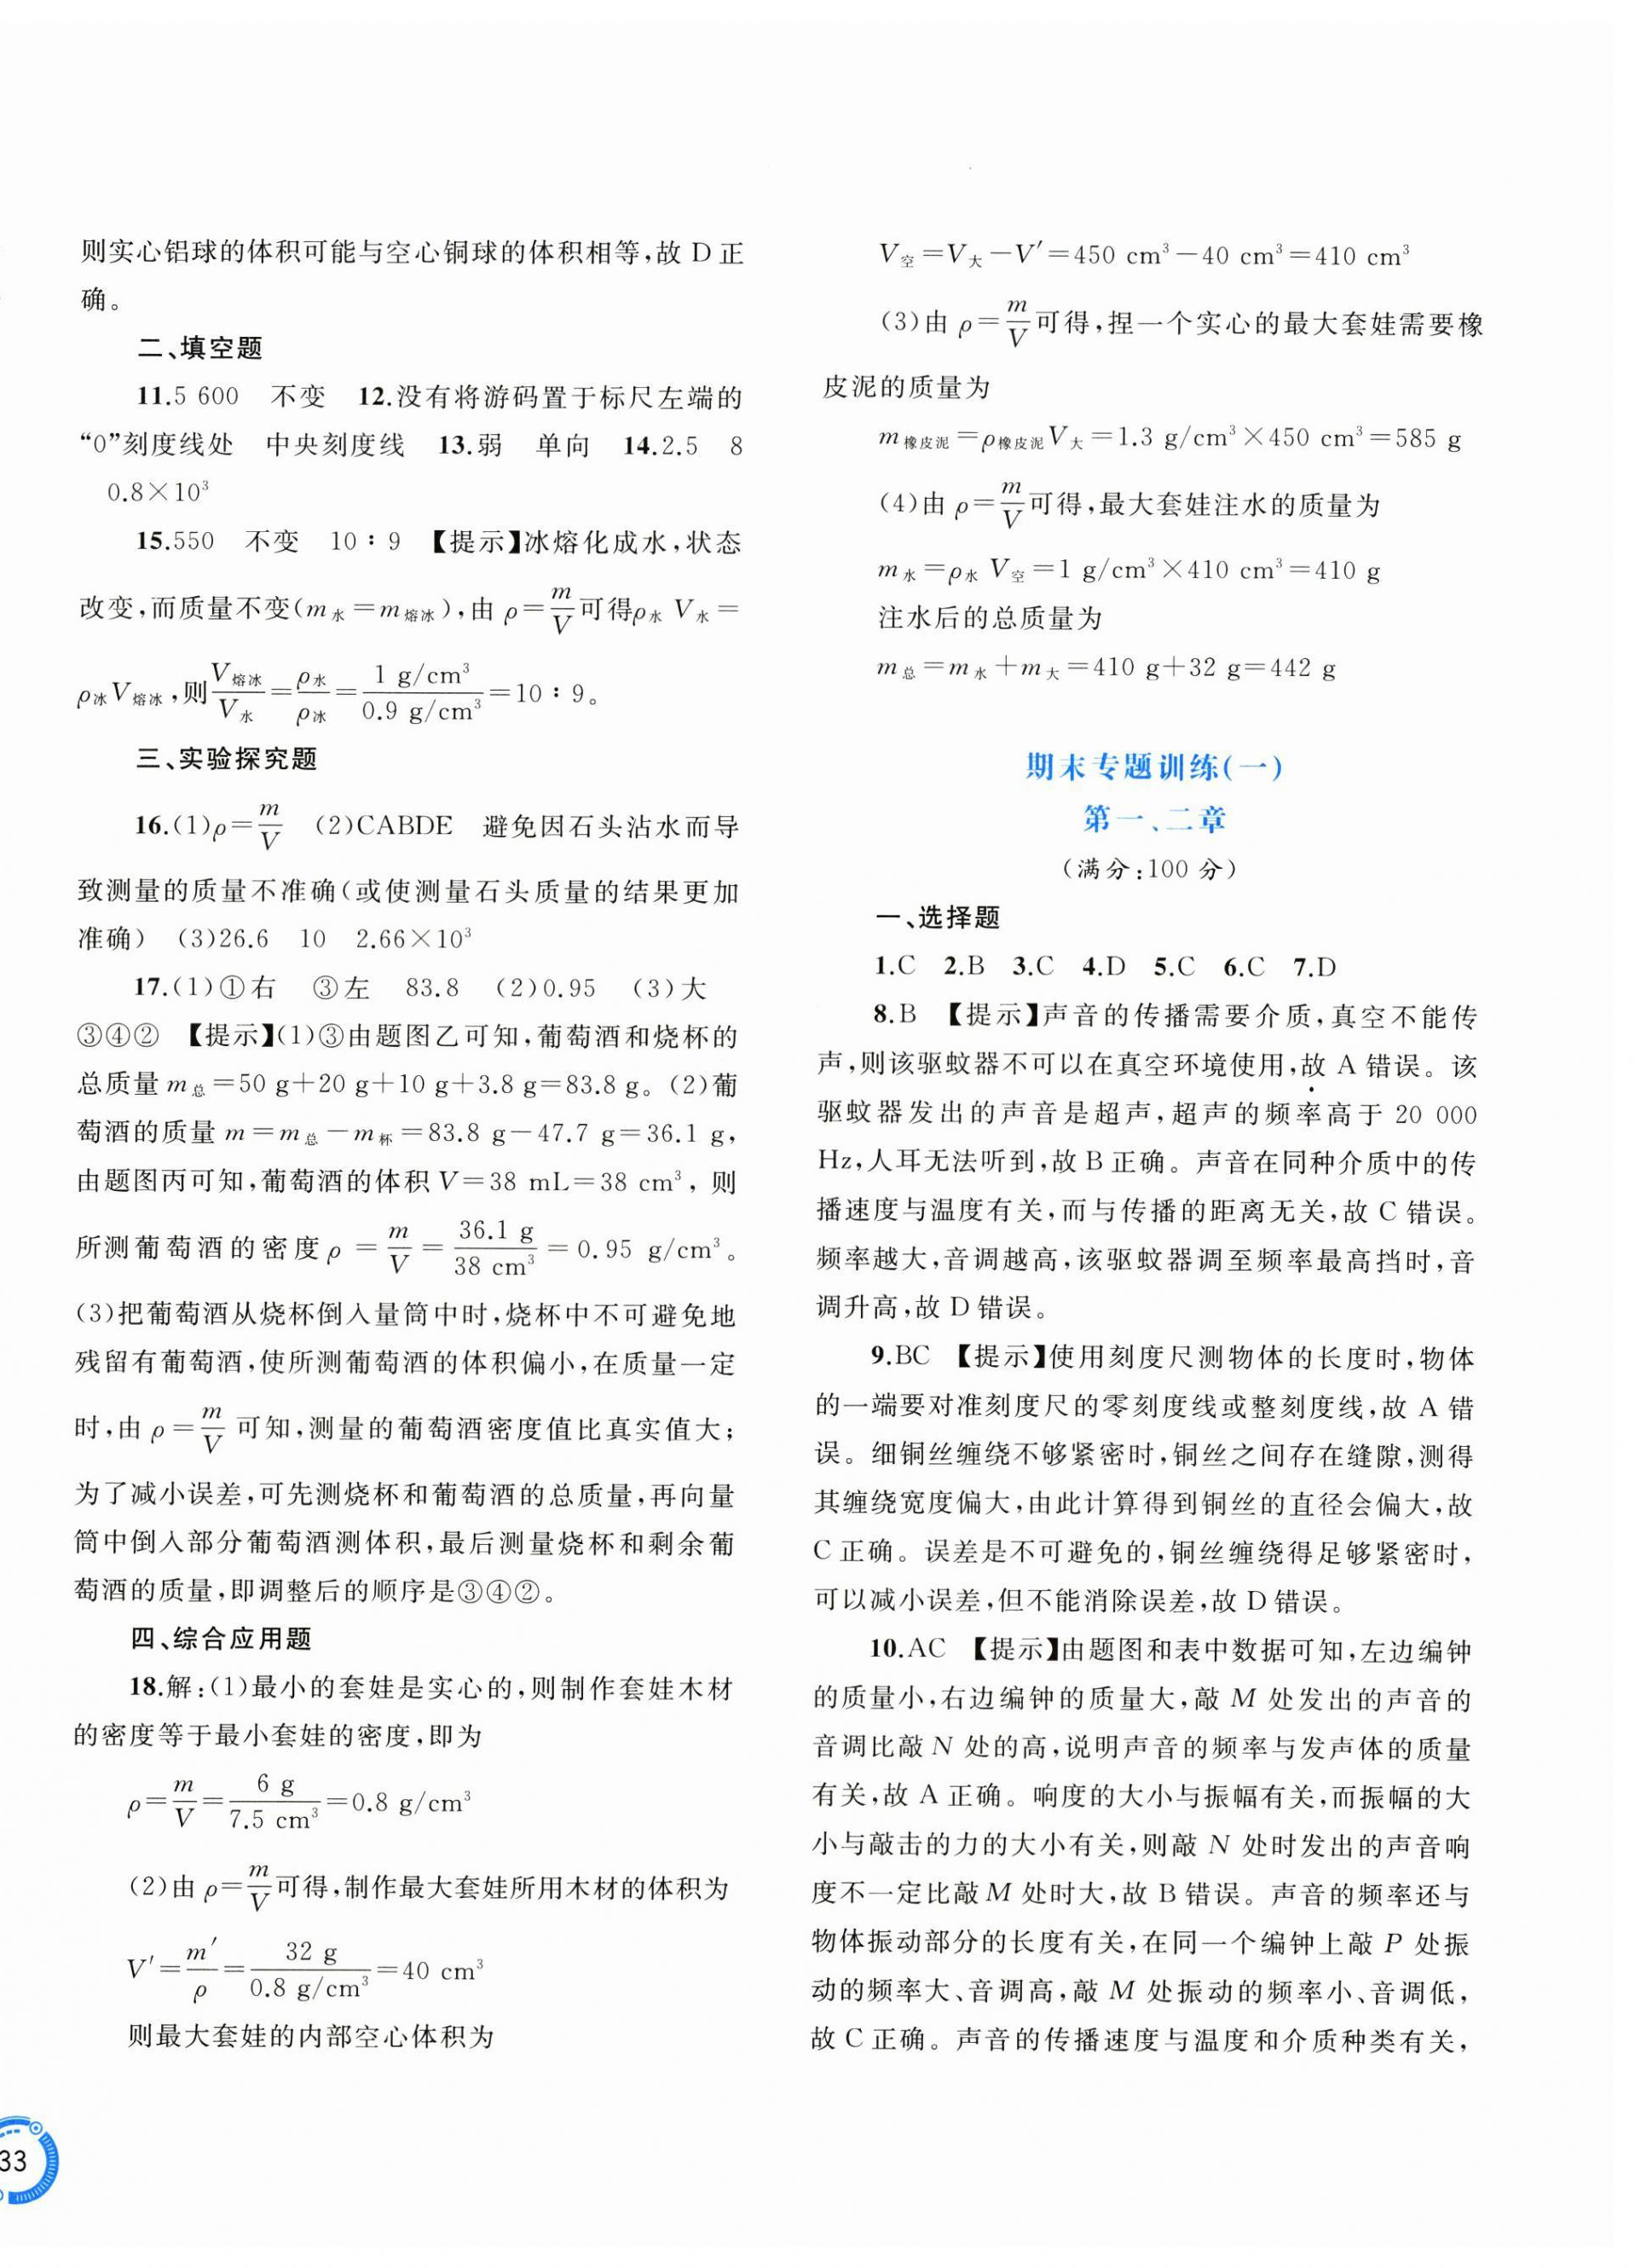 则实心铝球的体积可能与空心铜球的体积相等,故 D 正
确。
二、填空题
11.5 600 不变 12.没有将游码置于标尺左端的
“0”刻度线处 中央刻度线 13.弱 单向 14.2.5 8
0.8×10³
15.550 不变 10∶9 【提示】冰熔化成水,状态
改变,而质量不变(m水=m熔冰),由 ρ=m/V可得ρ水 V水=
ρ冰V熔冰,则V熔冰/V水=ρ水/ρ冰=1 g/cm³/0.9 g/cm³=10∶9。
三、实验探究题
16.(1)ρ=m/V (2)CABDE 避免因石头沾水而导
致测量的质量不准确(或使测量石头质量的结果更加
准确) (3)26.6 10 2.66×10³
17.(1)①右 ③左 83.8 (2)0.95 (3)大
③④② 【提示】(1)③由题图乙可知,葡萄酒和烧杯的
总质量 m总=50 g+20 g+10 g+3.8 g=83.8 g。(2)葡
萄酒的质量 m=m总-m杯=83.8 g-47.7 g=36.1 g,
由题图丙可知,葡萄酒的体积 V=38 mL=38 cm³,则
所测葡萄酒的密度 ρ=m/V=36.1 g/38 cm³=0.95 g/cm³。
(3)把葡萄酒从烧杯倒入量筒中时,烧杯中不可避免地
残留有葡萄酒,使所测葡萄酒的体积偏小,在质量一定
时,由 ρ=m/V可知,测量的葡萄酒密度值比真实值大;
为了减小误差,可先测烧杯和葡萄酒的总质量,再向量
筒中倒入部分葡萄酒测体积,最后测量烧杯和剩余葡
萄酒的质量,即调整后的顺序是③④②。
四、综合应用题
18.解:(1)最小的套娃是实心的,则制作套娃木材
的密度等于最小套娃的密度,即为
ρ=m/V=6 g/7.5 cm³=0.8 g/cm³
(2)由 ρ=m/V可得,制作最大套娃所用木材的体积为
V′=m′/ρ=32 g/0.8 g/cm³=40 cm³
则最大套娃的内部空心体积为
33
V空=V大-V′=450 cm³-40 cm³=410 cm³
(3)由 ρ=m/V可得,捏一个实心的最大套娃需要橡
皮泥的质量为
m橡皮泥=ρ橡皮泥V大=1.3 g/cm³×450 cm³=585 g
(4)由 ρ=m/V可得,最大套娃注水的质量为
m水=ρ水 V空=1 g/cm³×410 cm³=410 g
注水后的总质量为
m总=m水+m大=410 g+32 g=442 g
期末专题训练(一)
第一、二章
(满分:100 分)
一、选择题
1.C 2.B 3.C 4.D 5.C 6.C 7.D
8.B 【提示】声音的传播需要介质,真空不能传
声,则该驱蚊器不可以在真空环境使用,故 A 错误。该
驱蚊器发出的声音是超声,超声的频率高于 20 000
Hz,人耳无法听到,故 B 正确。声音在同种介质中的传
播速度与温度有关,而与传播的距离无关,故 C 错误。
频率越大,音调越高,该驱蚊器调至频率最高挡时,音
调升高,故 D 错误。
9.BC 【提示】使用刻度尺测物体的长度时,物体
的一端要对准刻度尺的零刻度线或整刻度线,故 A 错
误。细铜丝缠绕不够紧密时,铜丝之间存在缝隙,测得
其缠绕宽度偏大,由此计算得到铜丝的直径会偏大,故
C 正确。误差是不可避免的,铜丝缠绕得足够紧密时,
可以减小误差,但不能消除误差,故 D 错误。
10.AC 【提示】由题图和表中数据可知,左边编钟
的质量小,右边编钟的质量大,敲 M 处发出的声音的
音调比敲 N 处的高,说明声音的频率与发声体的质量
有关,故 A 正确。响度的大小与振幅有关,而振幅的大
小与敲击的力的大小有关,则敲 N 处时发出的声音响
度不一定比敲 M 处时大,故 B 错误。声音的频率还与
物体振动部分的长度有关,在同一个编钟上敲 P 处振
动的频率大、音调高,敲 M 处振动的频率小、音调低,
故 C 正确。声音的传播速度与温度和介质种类有关,